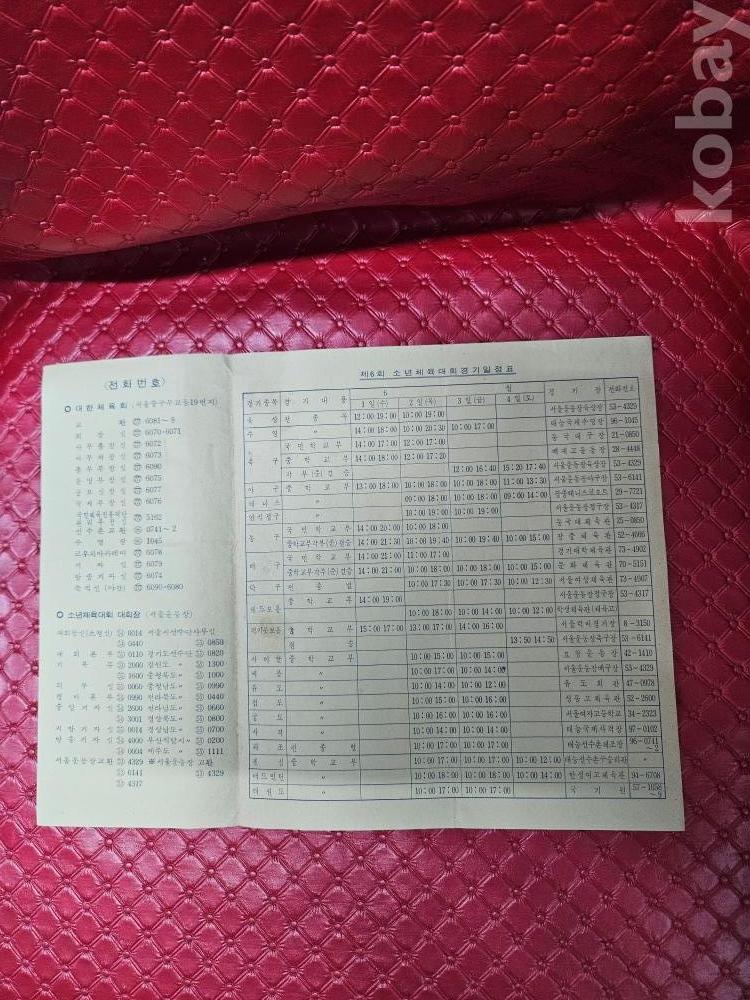 kobay
(전화번호)
대한체육회 (서울중구무교동19번지)
교 환 6081~9
회 장 실 6070·6071
사무총장실 6072
사무차장실 6073
총무부장실 6090
운영부장실 6075
6077
국제부장실 6076
5162
선수촌교환 0741~2
수영장 1045
6078
기자실 6079
방송기자실 6074
숙직실 (야간) 6090·6080
소년체육대회 대회장 (서울운동장)
0014 서울시선수단사무실
0440 0859
대회본부 0110 경기도선수단 0820
기록부 2000 강원도 〃 1300
1600 충청북도 〃 1000
0060 충청남도 〃 0990
0990 전라북도 〃 0440
중앙기자실 2600 전라남도 〃 0660
3001 경상북도 〃 0800
지방기자실 0014 경상남도 〃 0700
방송기자실 4000 부산직할시 〃 0200
0004 제주도 〃 1111
서울운동장교환 4329 ※서울운동장 교환
6141 4329
4317
제6회 소년체육대회경기일정표
경기종목 경기내용 6 월 경기장 전화번호
1일(수) 2일(목) 3일(금) 4일(토)
육상 전종목 12:00 19:00 10:00 19:00 서울운동장육상장 53-4329
수영 〃 14:00 18:00 10:00 20:30 10:00 17:00 태능국제수영장 96-1045
축구 국민학교부 14:00 17:00 12:00 17:00 동국대구장 21-0850
중학교부 14:00 18:00 12:00 17:20 배재고운동장 28-4448
결승 12:00 16:40 15:20 17:40 서울운동장육상장 53-4329
야구 중학교부 13:00 18:00 10:00 18:00 10:00 18:00 11:00 13:30 서울운동장야구장 53-6141
테니스 〃 09:00 18:00 09:00 18:00 09:00 14:00 장충테니스코오트 29-7721
연식정구 〃 10:00 18:00 10:00 19:00 서울운동장정구장 53-4317
농구 국민학교부 14:00 20:00 10:00 18:00 동국대체육관 25-0850
중학교부각부(준)결승 14:00 21:30 10:00 19:40 10:00 19:40 10:00 15:00 장충체육관 52-4066
배구 국민학교부 14:00 21:00 11:00 17:00 경기대학체육관 73-4902
중학교부각부(준)결승 14:00 21:00 10:00 18:00 10:00 18:00 10:00 15:00 문화체육관 70-5151
탁구 전종별 10:00 17:30 10:00 17:30 10:00 12:30 서울여상체육관 73-4907
핸드보올 중학교부 14:00 19:00 서울운동장정구장 53-4317
10:00 18:00 10:00 14:00 10:00 12:00 학생체육관(체육고)
럭비풋보올 중학교부 15:00 17:00 13:00 17:00 14:00 16:00 서울럭비경기장 8-3150
결승 13:50 14:50 서울운동장축구장 53-6141
사이클 중학교부 10:00 15:00 10:00 15:00 42-1410
〃 10:00 17:00 10:00 14:00 서울운동장배구장 53-4329
유도 〃 10:00 14:00 10:00 12:00 유도회관 47-0978
검도 〃 10:00 15:00 10:00 14:00 성동고체육관 52-2600
궁도 〃 10:00 16:00 10:00 16:00 서울여자고등학교 34-2323
사격 〃 10:00 17:00 10:00 14:00 태능국제사격장 97-0102
체조 전종별 10:00 17:00 10:00 17:00 태능선수촌체조장 96-0741~2
권투 중학교부 10:00 17:00 10:00 17:00 10:00 12:00 태능선수촌승리관 〃
배드민턴 〃 10:00 18:00 10:00 18:00 10:00 14:00 한성여고체육관 94-6708
태권도 〃 10:00 17:00 10:00 17:00 국기원 57-1058~9